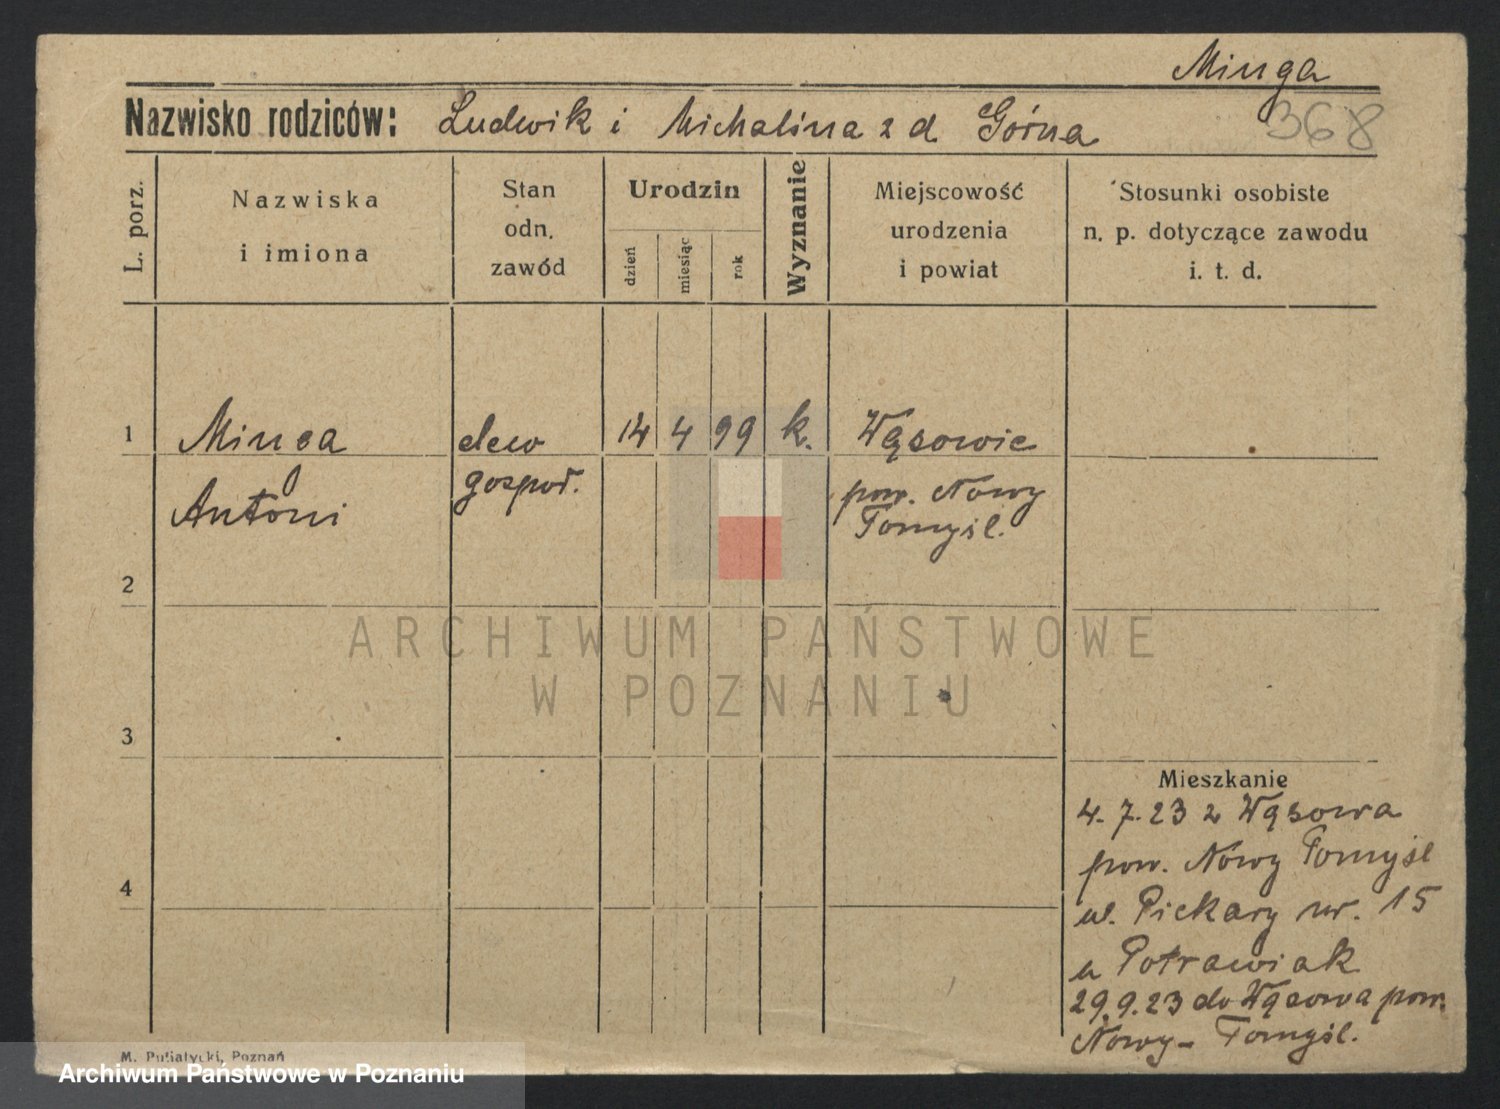 Minga
368
Nazwisko rodziców: Ludwik i Michalina z d Górna
L. porz.
Nazwiska
i imiona
Stan
odn.
zawód
Urodzin
dzień
miesiąc
rok
Wyznanie
Miejscowość
urodzenia
i powiat
Stosunki osobiste
n. p. dotyczące zawodu
i. t. d.
1 Minga elew 14 4 99 k. Wąsowie
gospod.
Antoni pow. Nowy
Tomyśl.
2
ARCHIWUM PAŃSTWOWE
W POZNANIU
3
Mieszkanie
4. 7. 23 z Wąsowa
pow. Nowy Tomyśl
4
ul. Piekary nr. 15
u Potrawiak
29.9.23 do Wąsowa pow.
Nowy-Tomyśl.
M. Putiatycki, Poznań
Archiwum Państwowe w Poznaniu